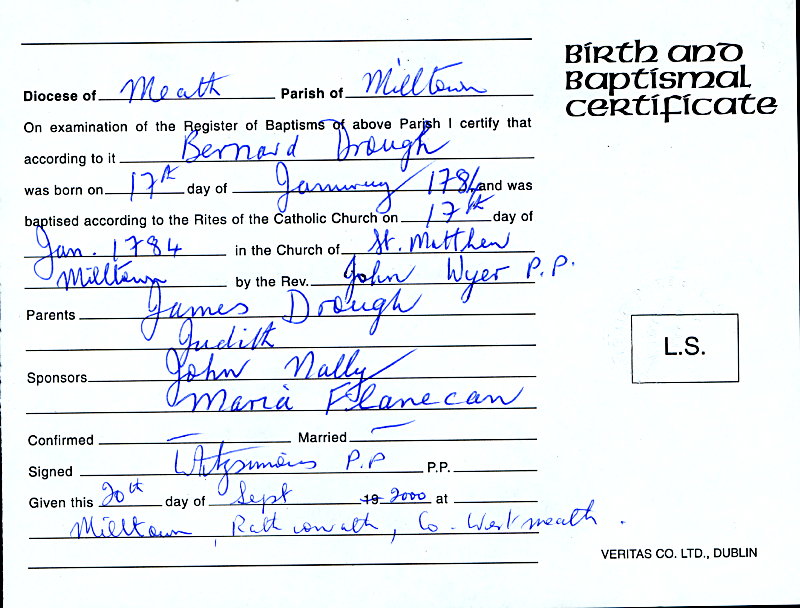 Birth and
Baptismal
Certificate
Diocese of Meath Parish of Milltown
On examination of the Register of Baptisms of above Parish I certify that
according to it Bernard Drough
was born on 17th day of January 1784 and was
baptised according to the Rites of the Catholic Church on 17th day of
Jan. 1784 in the Church of St. Matthew
Milltown by the Rev. John Wyer P.P.
Parents James Drough
Judith
Sponsors John Nally
Maria Flanecan
L.S.
Confirmed — Married —
Signed P.P P.P.
Given this 20th day of Sept 19 2000 at
Milltown Rathconrath, Co. Westmeath.
VERITAS CO. LTD., DUBLIN